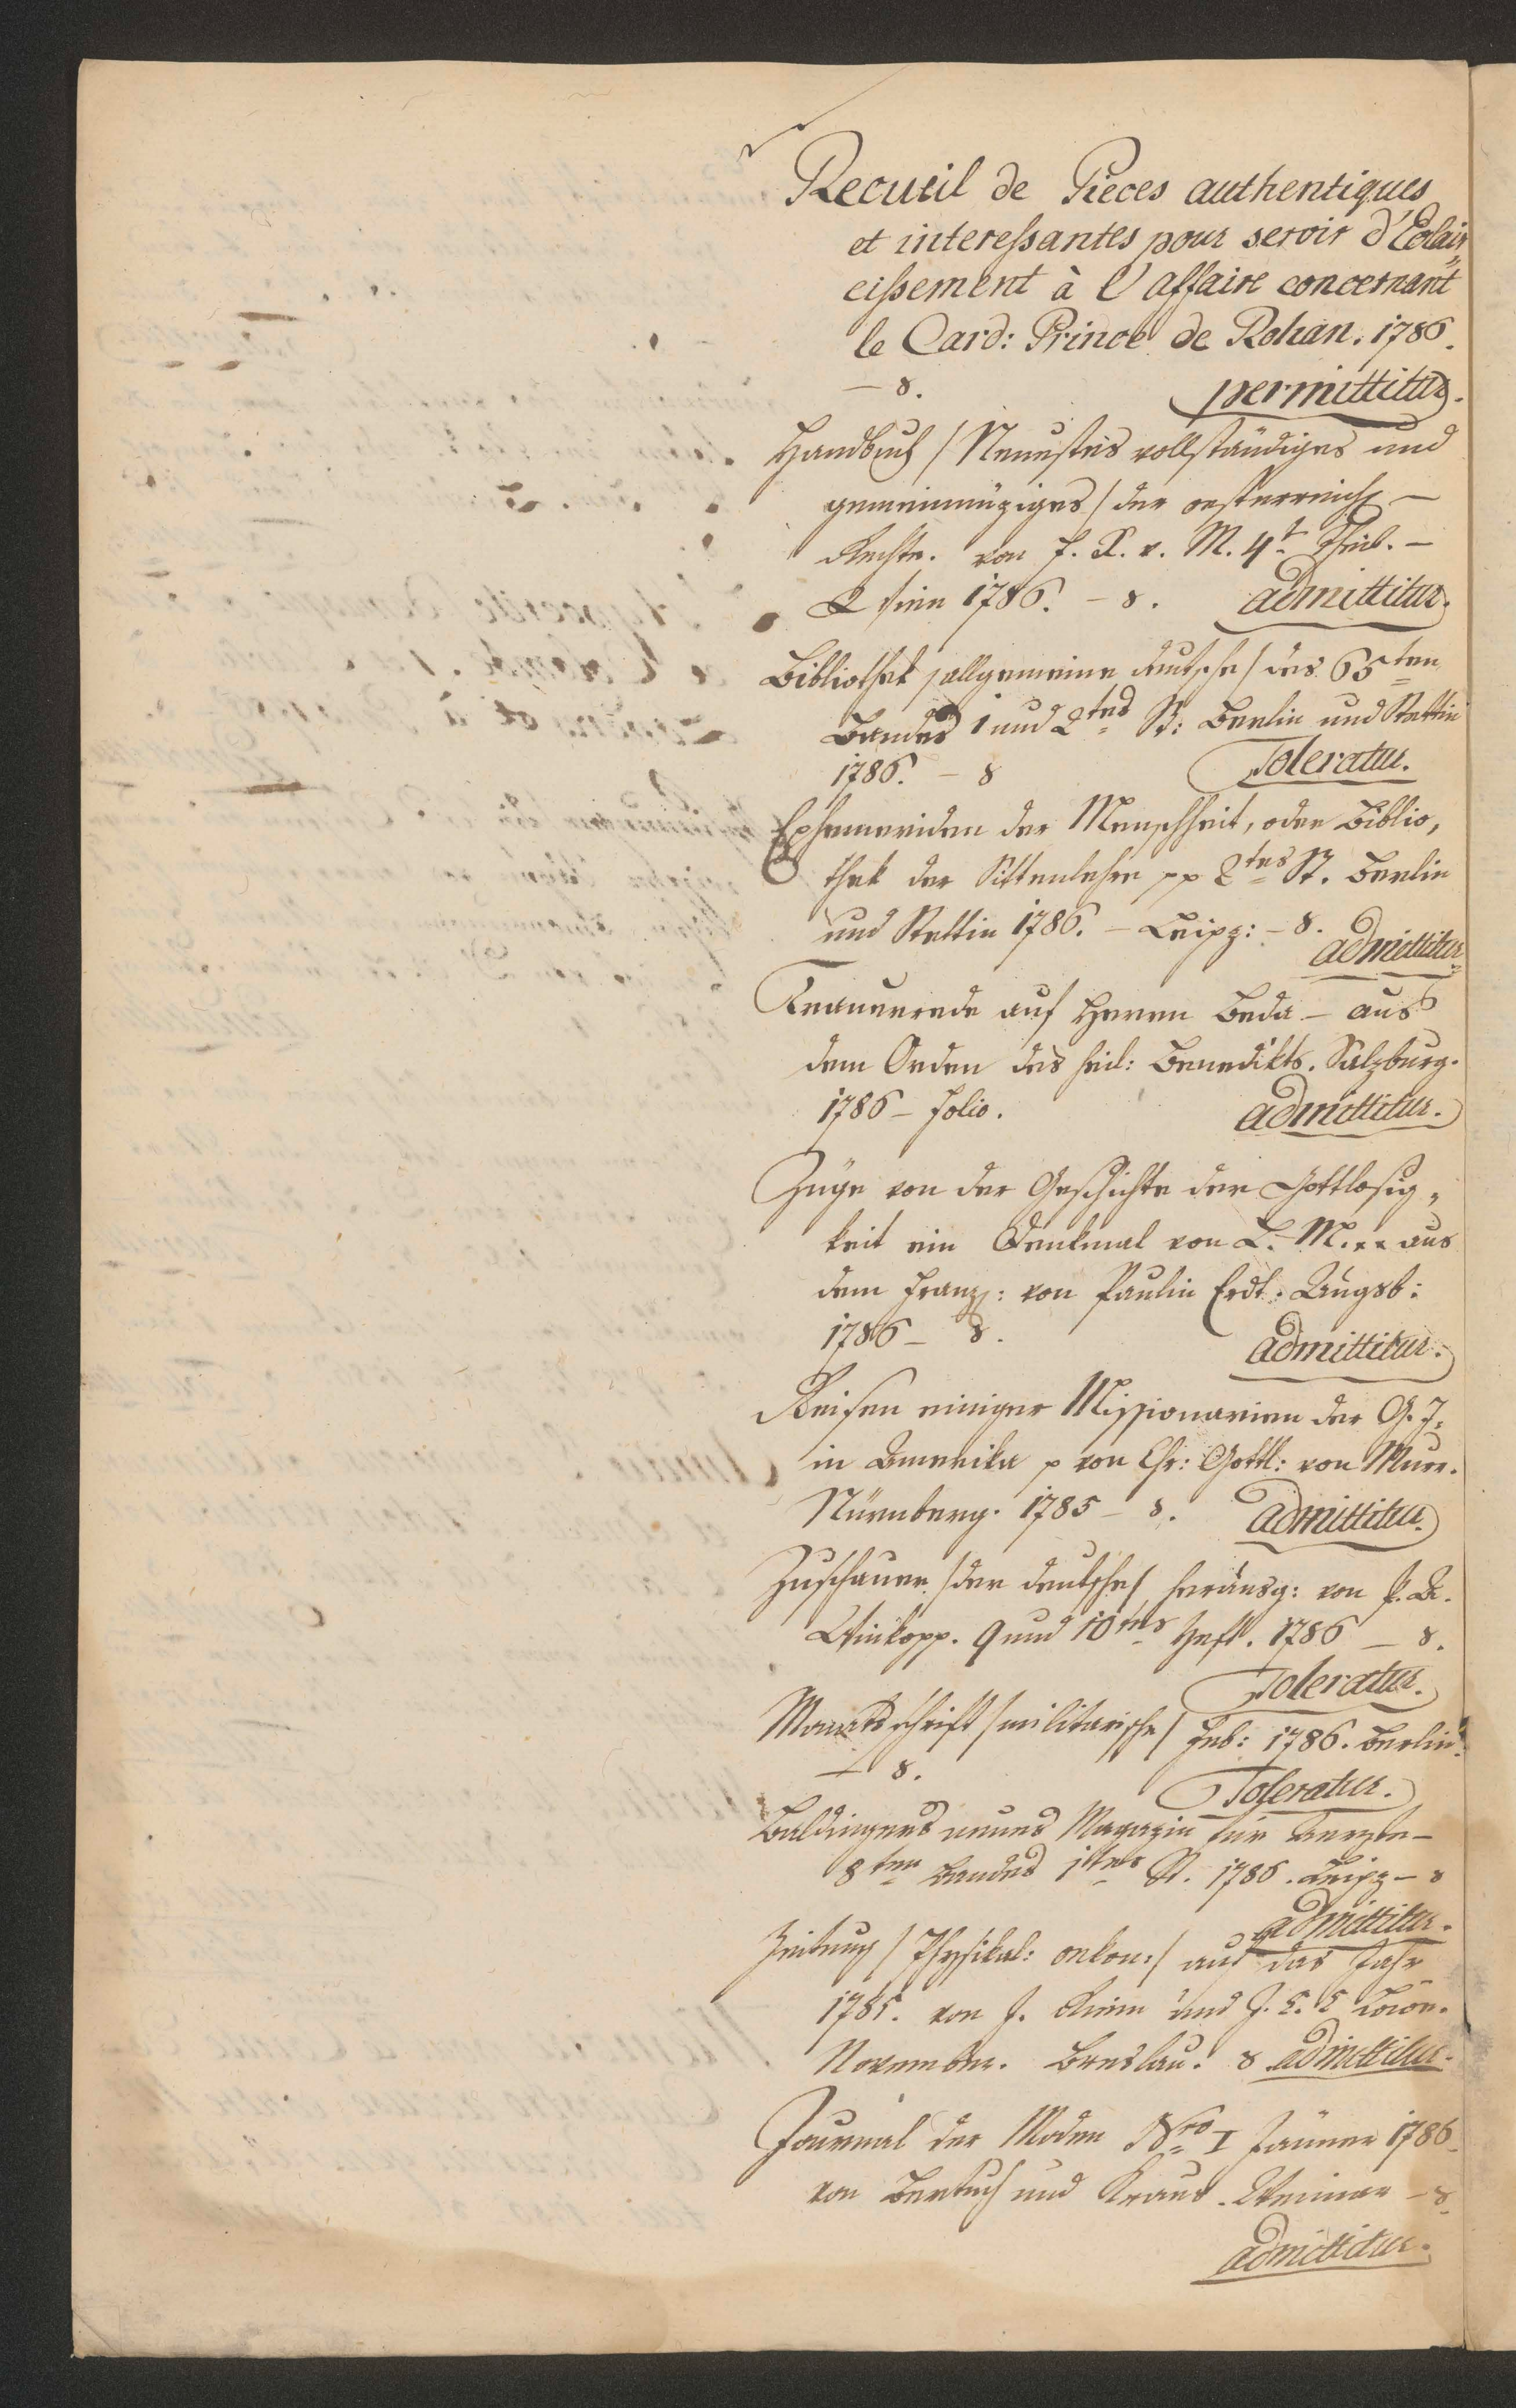 Recueil de Pieces authentiques
et interessantes pour servir d'Eclair„
cissement à l'affaire concernant
le Card: Prince de Rohan. 1786.
— 8. permittitur.
Handbuch /Neuestes vollständiges und
gemeinnüziges/ der oesterreich —
Rechte. von J. X. v. M. 4t Theil. —
Wien 1786. — 8. admittitur.
Bibliothek /allgemeine deutsche/ des 65ten
Bandes 1 und 2tes St: Berlin und Stettin
1786. — 8 Toleratur.
Ephemeriden der Menschheit, oder Biblio„
thek der Sittenlehre pp 2tes St. Berlin
und Stettin 1786. — Leipz: — 8. admittitur
Trauerrede auf Herrn Beda — aus
dem Orden des heil: Benedikts. Salzburg.
1786 — Folio. admittitur.
Züge von der Geschichte der Gottlosig„
keit ein Denkmal von L. M. xx aus
dem Franz: von Paulin Erdt. Augsb:
1786 — 8. admittitur.
Reisen einiger Missionarien der G. J.
in Amerika p von Chr: Gottl: von Murr.
Nürnberg. 1785 — 8. admittitur.
Zuschauer /der deutsche/ herausg: von P. A.
Winkopp. 9 und 10tes Heft. 1786 — 8.
Toleratur.
Monatsschrift /militarische/ Feb: 1786. Berlin.
— 8. Toleratur.
Baldingers neues Magazin für Aerzte —
8ten Bandes 1tes St. 1786. Leipz — 8
admittitur.
Zeitung /Physikal: oekon:/ auf das Jahr
1785. von J. Riem und J. C. C. Löwe.
November. Breslau. 8 admittitur.
Journal der Moden Nro I Jänner 1786.
von Bertuch und Kraus. Weimar — 8.
admittitur.